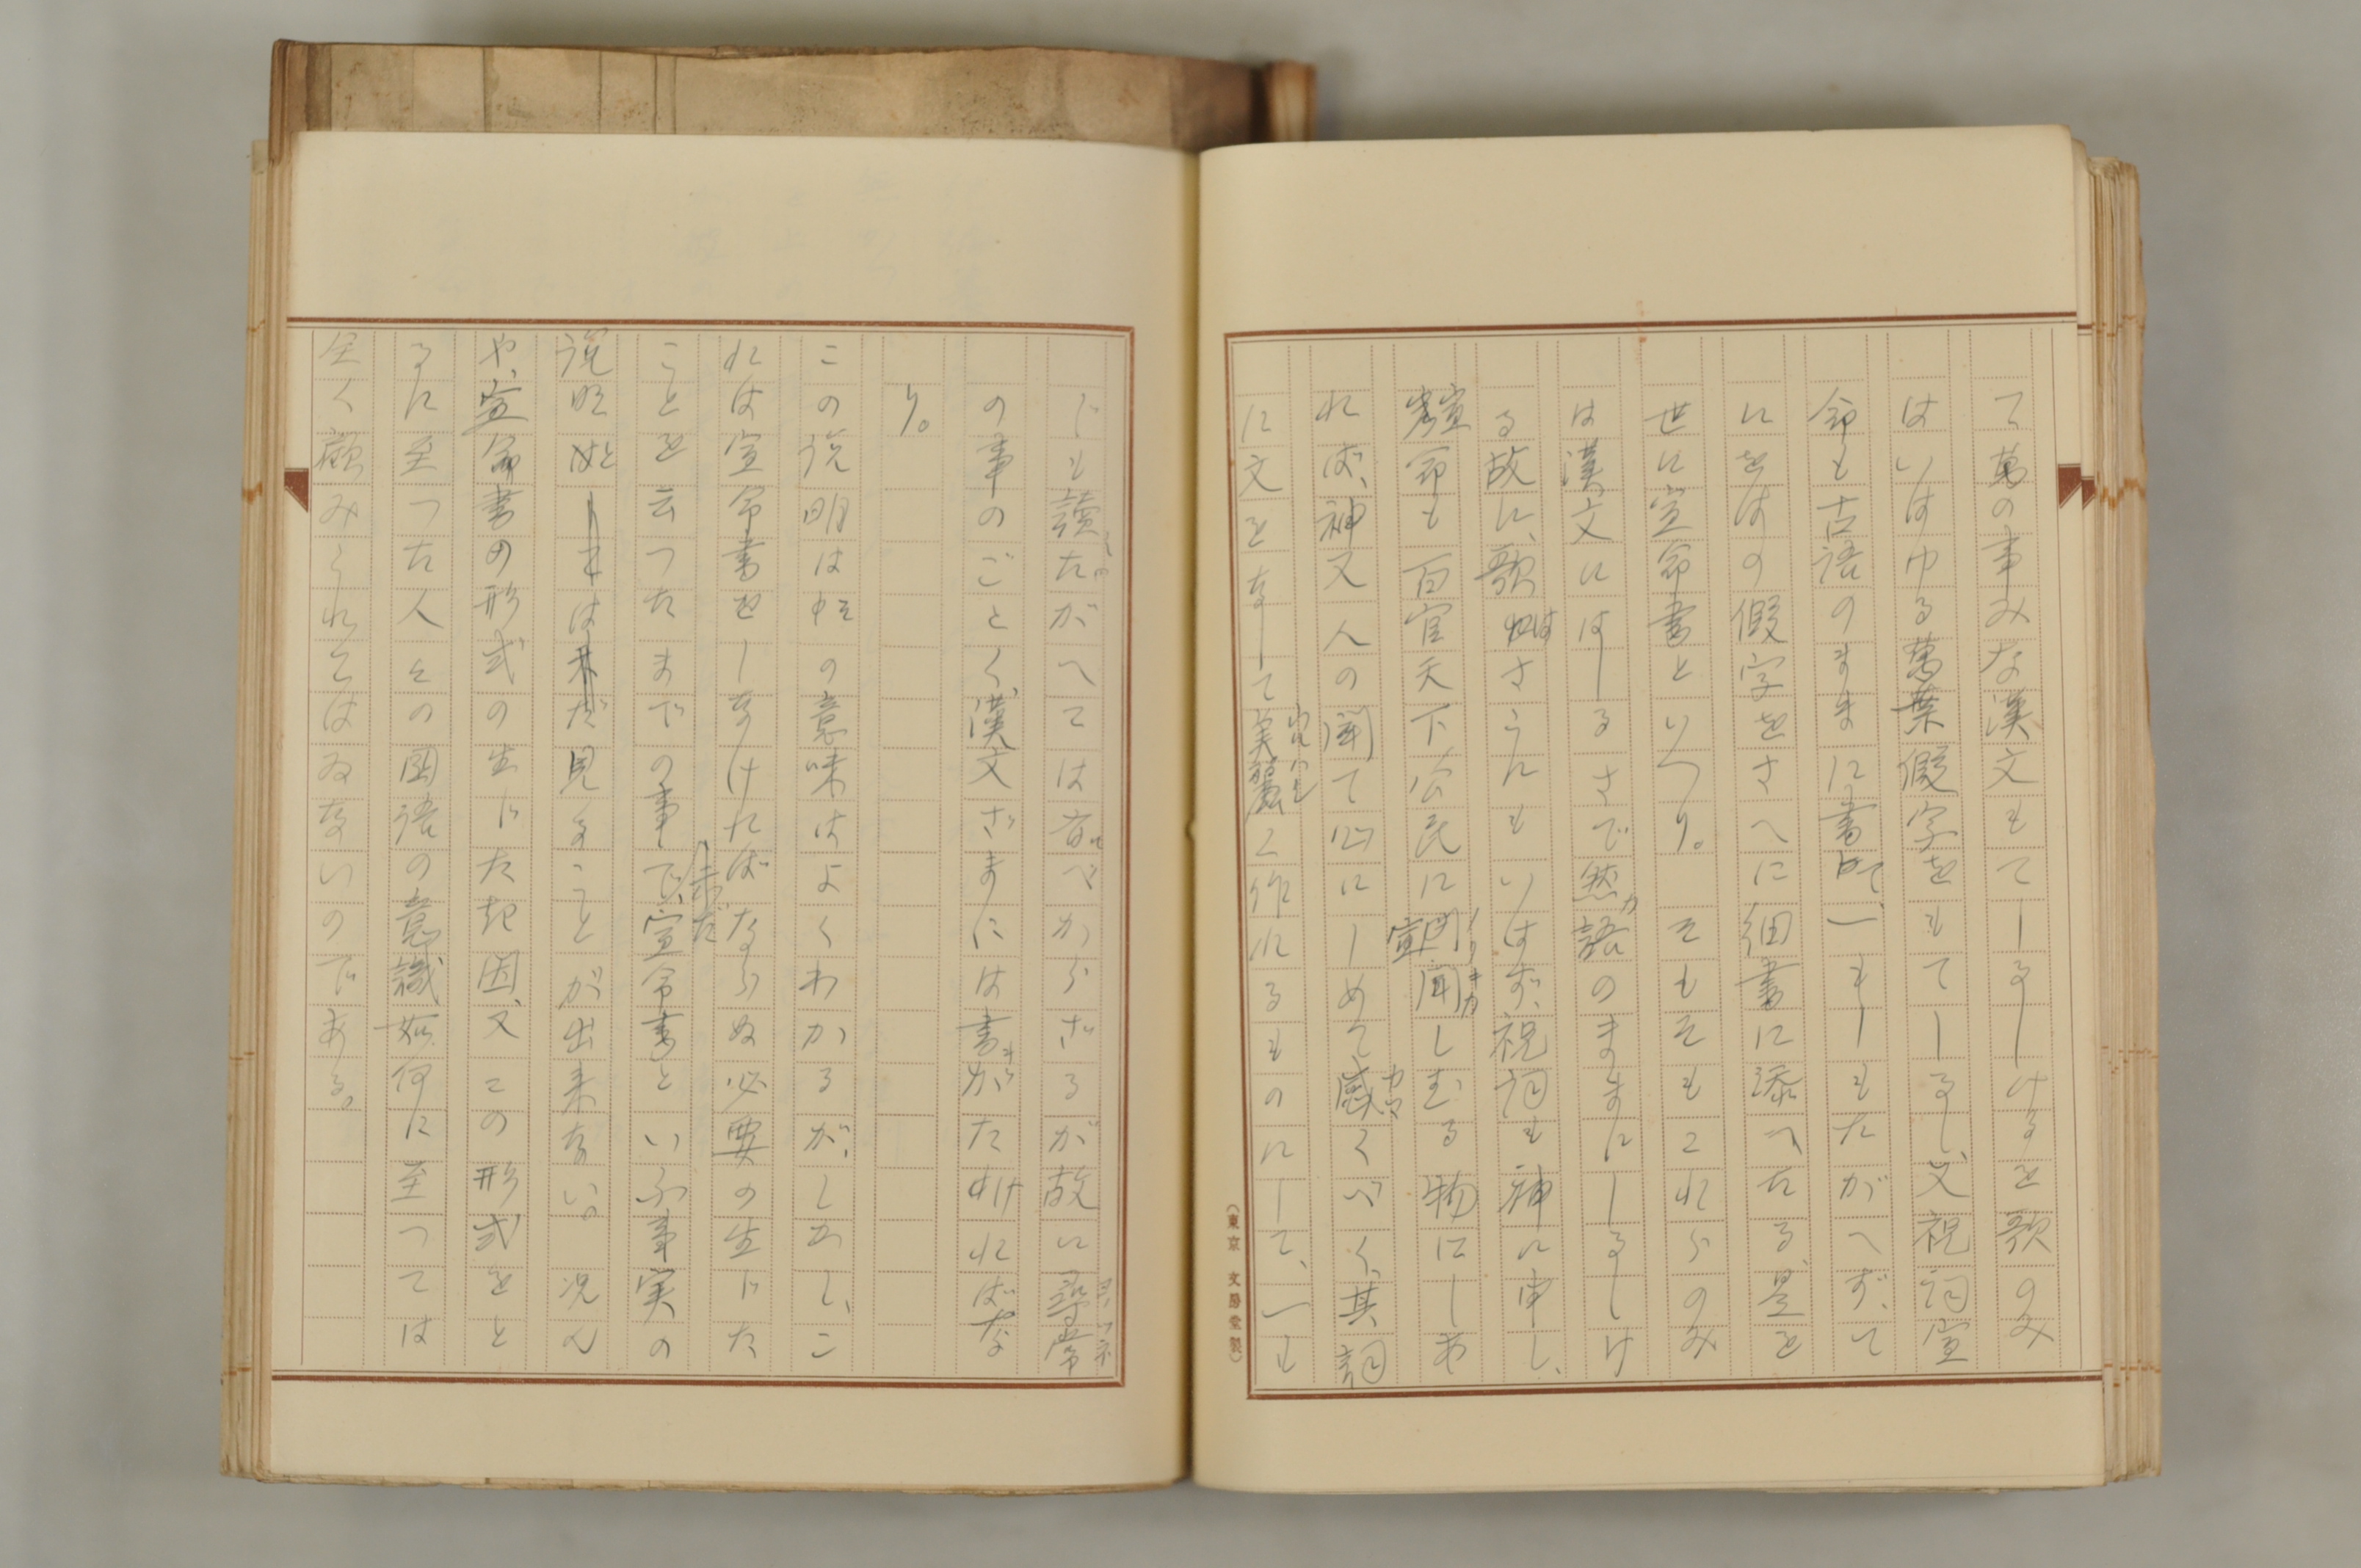 て萬の事みな漢文もてしるしけるを歌のみ
はいはゆる萬葉假字をもてしるし、又祝詞宣
命も古語のままに書て、一もじもたがへず、て
にをはの假字をさへに細書に添へたる、是を
世に宣命書といへり。そもそもこれらのみ
は漢文にはしるさで然語のままにしるしけ
る故に、歌はさらにもいはず、祝詞も神に申し、
宣命も百官天下公民に宣聞しむる物にしあ
れば、神又人の聞て心にしめて感くべく、其詞
に文をなして美麗く作れるものにして、一も
じも讀たがへては有べからざるが故に尋常
の事のごとく、漢文ざまには書がたければな
り。
この説明は一の意味はよくわかるが、しかし、こ
れは宣命書をしなければならぬ必要の生じた
ことを云つたまでの事で、未だ宣命書といふ事実の
説明とは見ることが出来ない。况ん
や、宣命書の形式の生じた起因、又この形式をと
るに至つた古人の國語の意識如何に至つては
全く顧みられてはゐないのである。
(東京 文房堂製)